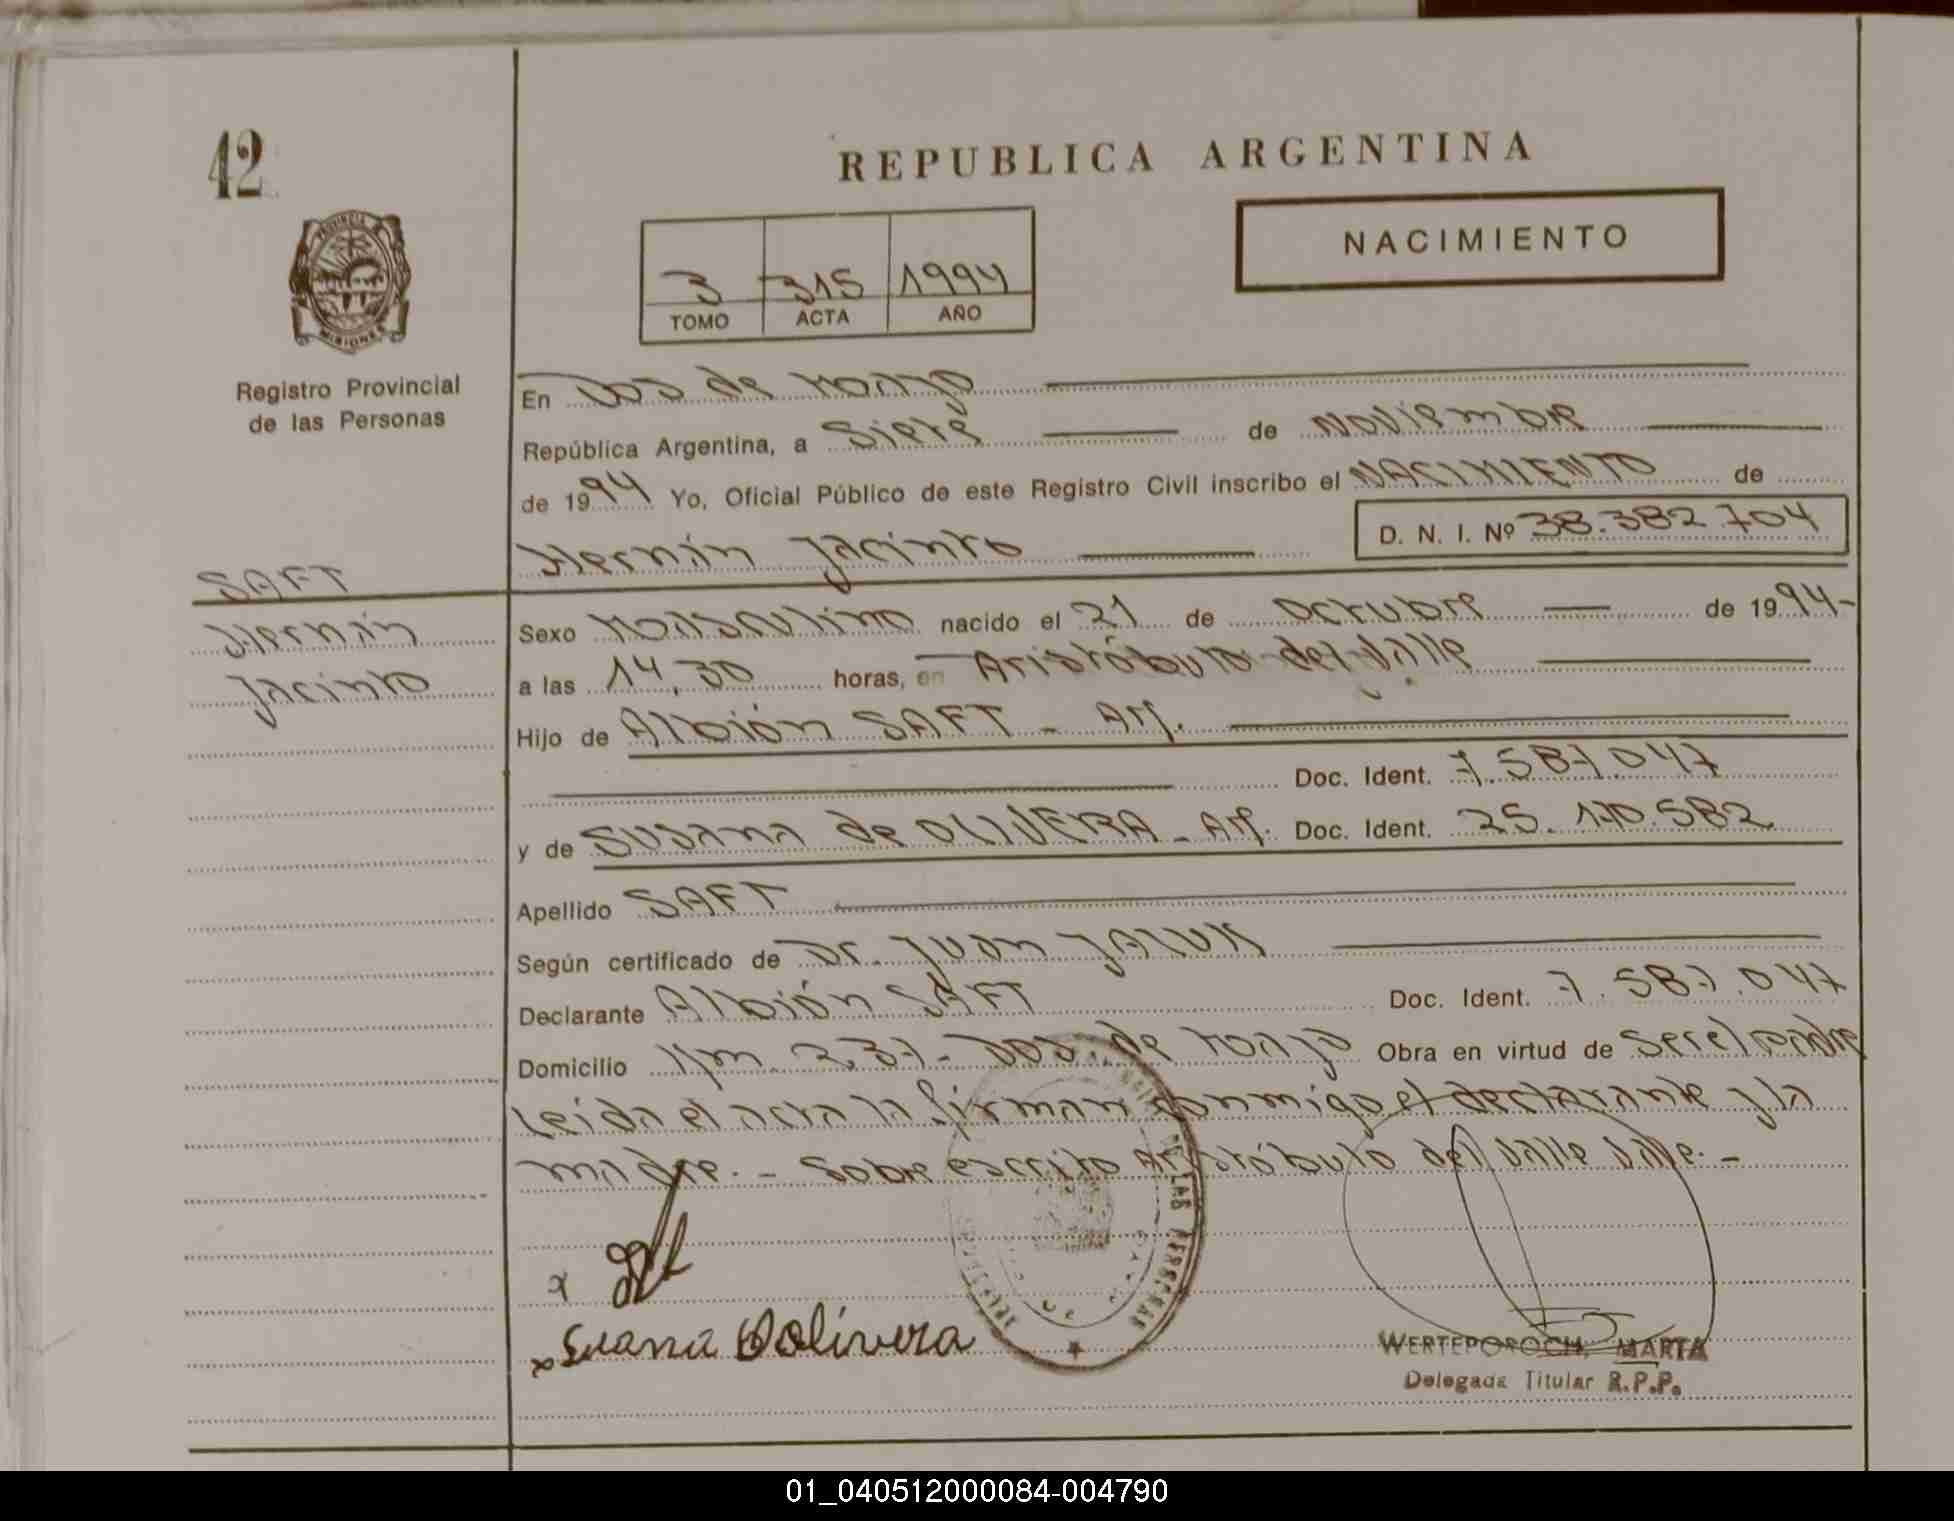 42
REPUBLICA ARGENTINA
NACIMIENTO
3 315 1994
TOMO ACTA AÑO
PROVINCIA
MISIONES
Registro Provincial
de las Personas
En Dos de Mayo
República Argentina, a Siete de Noviembre
de 1994 Yo, Oficial Público de este Registro Civil inscribo el NACIMIENTO de
Hernán Jacinto D. N. I. Nº 38.382.704
SAFT
Hernán
Jacinto
Sexo Masculino nacido el 21 de octubre de 1994-
a las 14,30 horas, en Aristóbulo del Valle
Hijo de Albión SAFT - Arg.
Doc. Ident. 7.587.047
y de SUSANA de OLIVERA - Arg. Doc. Ident. 25.170.582
Apellido SAFT
Según certificado de Dr. Juan
Declarante Albión SAFT Doc. Ident. 7.587.047
Domicilio Km. 237- Dos de Mayo Obra en virtud de ser el padre
Leída el acta la firman conmigo el declarante y la
madre. - Sobre escrito Aristóbulo del Valle Vale. -
x
x Susana Dolivera
DE LAS PERSONAS
WERTEPOROCH, MARTA
Delegada Titular R.P.P.
01_040512000084-004790